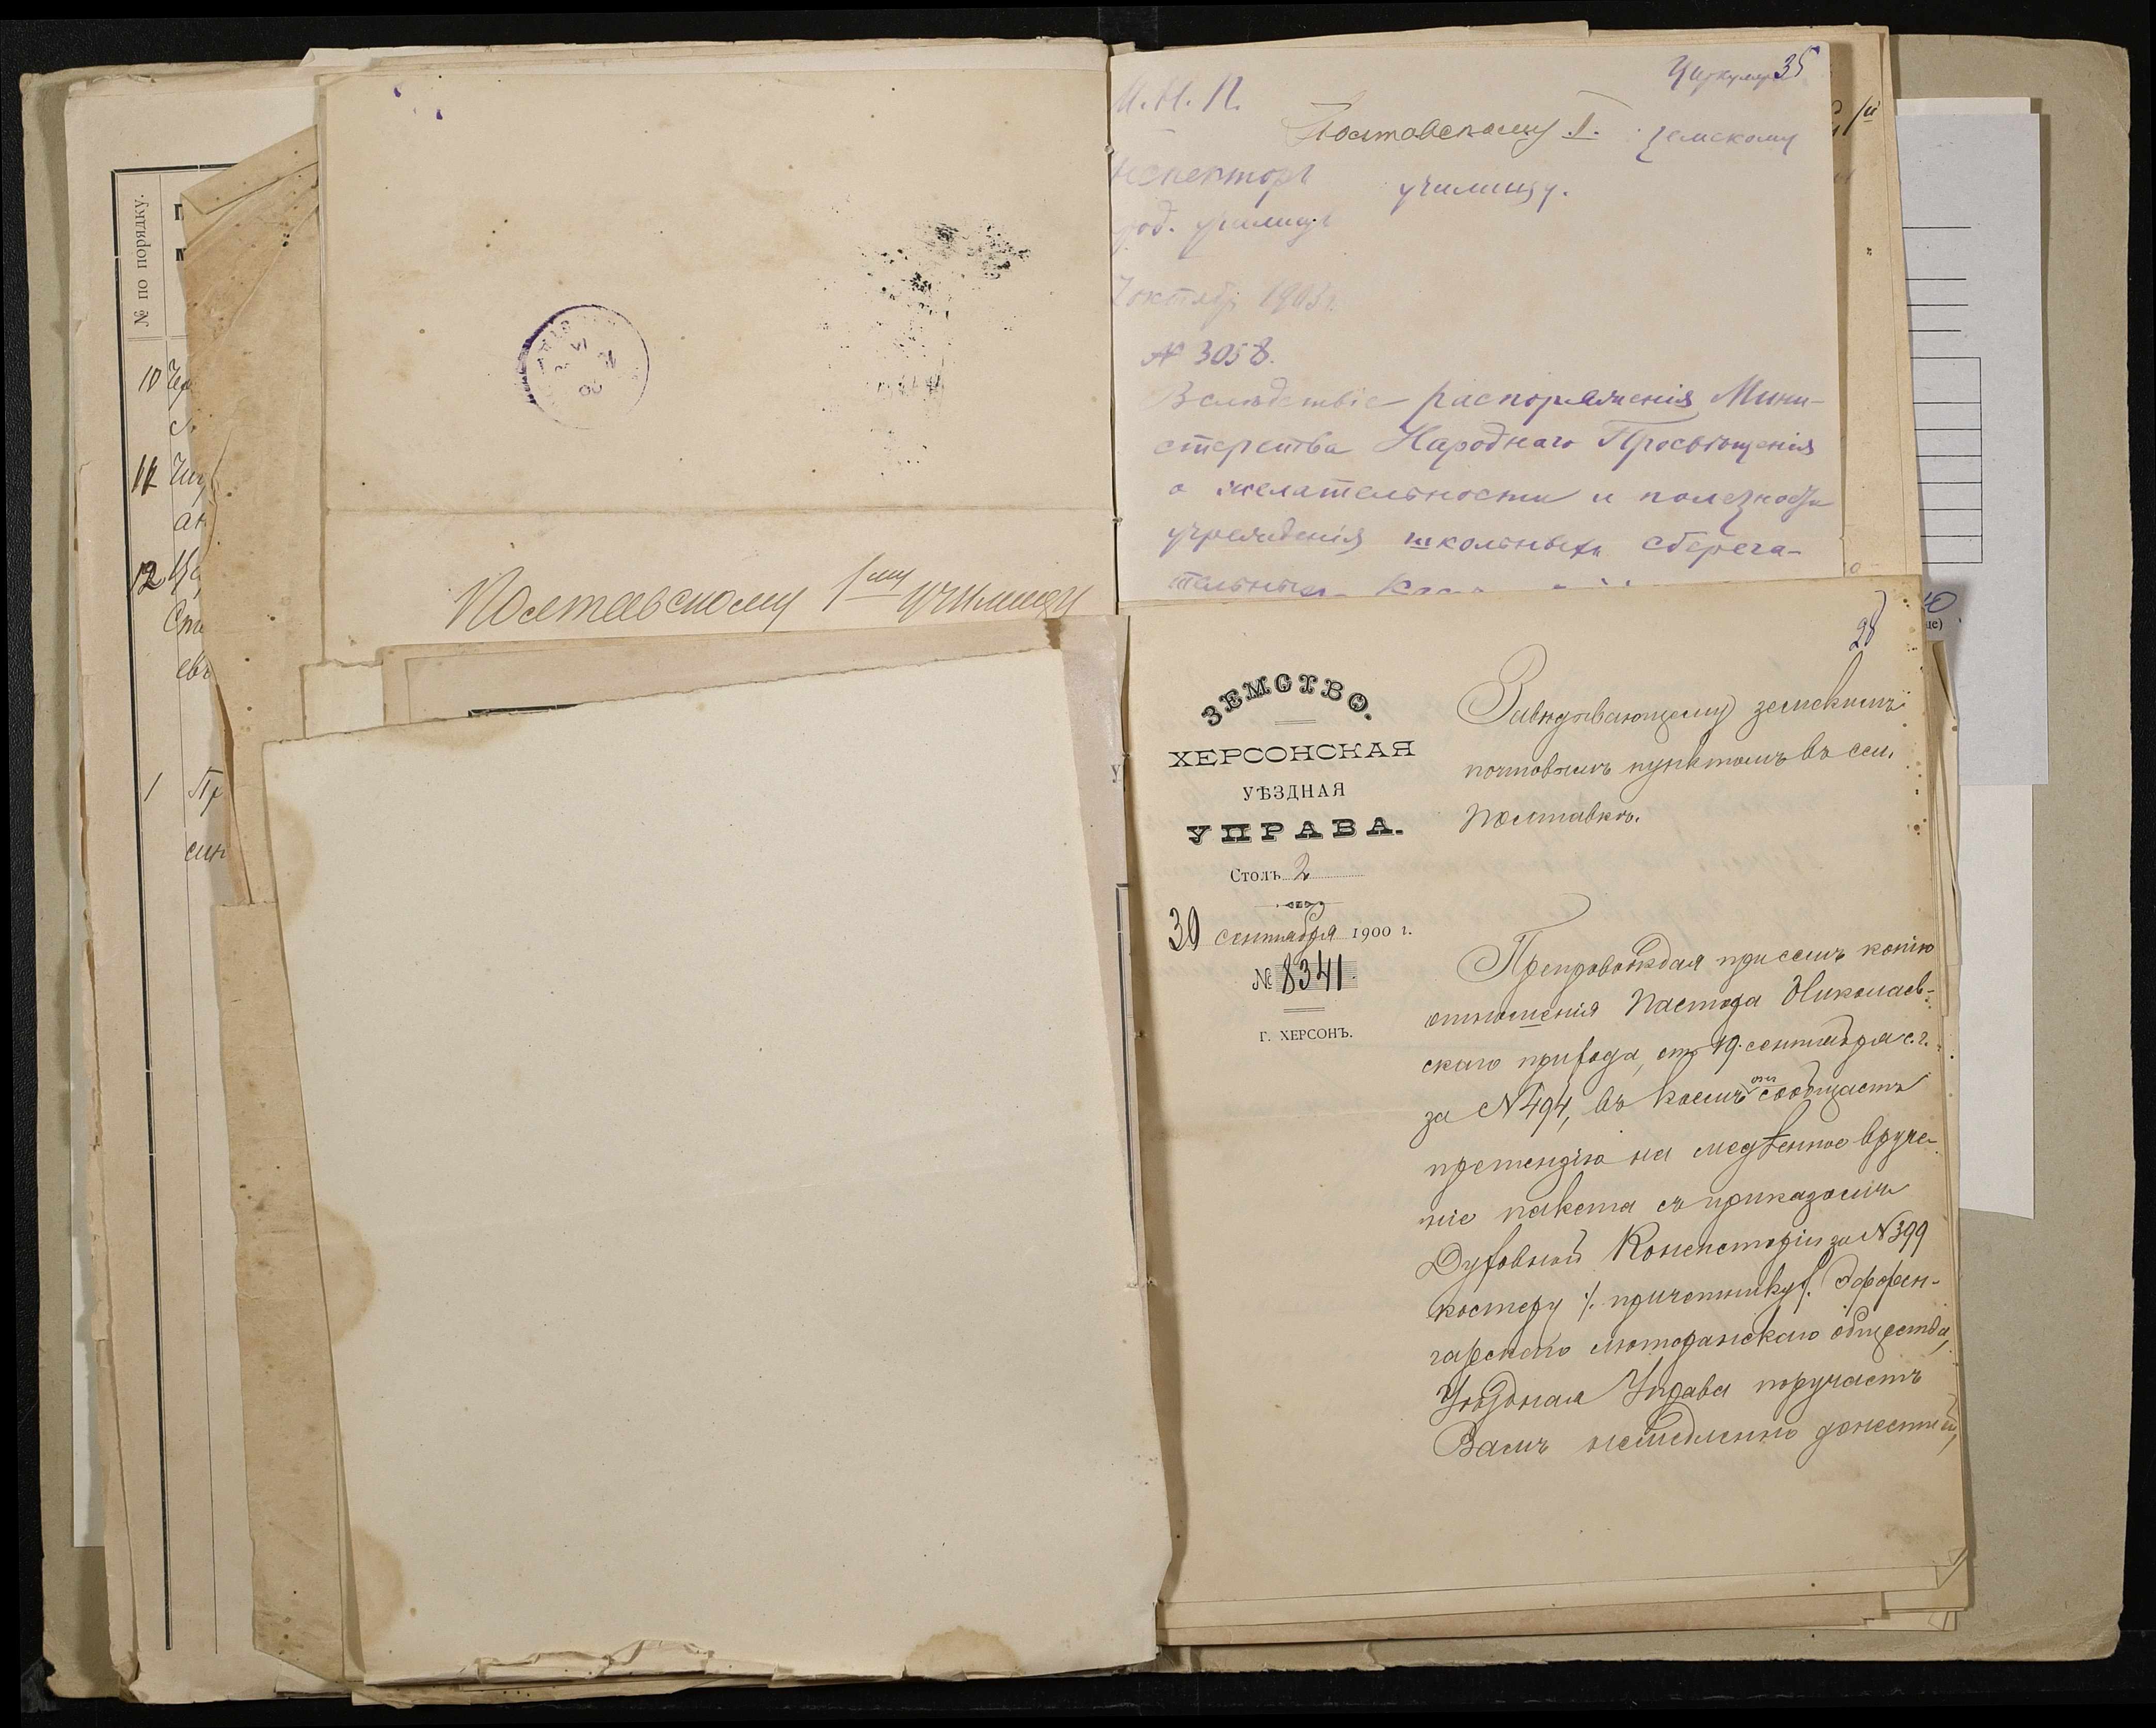 № по порядку.
10
11
12
1
Полтавскому 1му училищу
Циркуляр 35
М. Н. П.
Полтавскому I. земскому
училищу.
октябр 1903 г.
№ 3058.
Вслѣдствіе распоряженія Мини-
стерства Народнаго Просвѣщенія
о желательности и полезности
учрежденія школьныхъ сберега-
тельныхъ
28
ЗЕМСТВО.
ХЕРСОНСКАЯ
УѢЗДНАЯ
УПРАВА.
Столъ 2
30 сентября 1900 г.
№ 8341
Г. ХЕРСОНЪ.
Завѣдывающему земскимъ
почтовымъ пунктомъ въ сел.
Полтавкѣ.
Препровождая при семъ копію
отношенія Пастора Николаев-
скаго прихода, отъ 19 сентября с. г.
за № 494, въ коемъ онъ сообщаетъ
претензію на медленное вруче-
ніе пакета съ приказомъ
Духовной Консисторіи за № 399
костеру /. причетнику /. Эффен-
гарскаго лютеранскаго общества,
Уѣздная Управа поручаетъ
Вамъ немедленно донести ей,